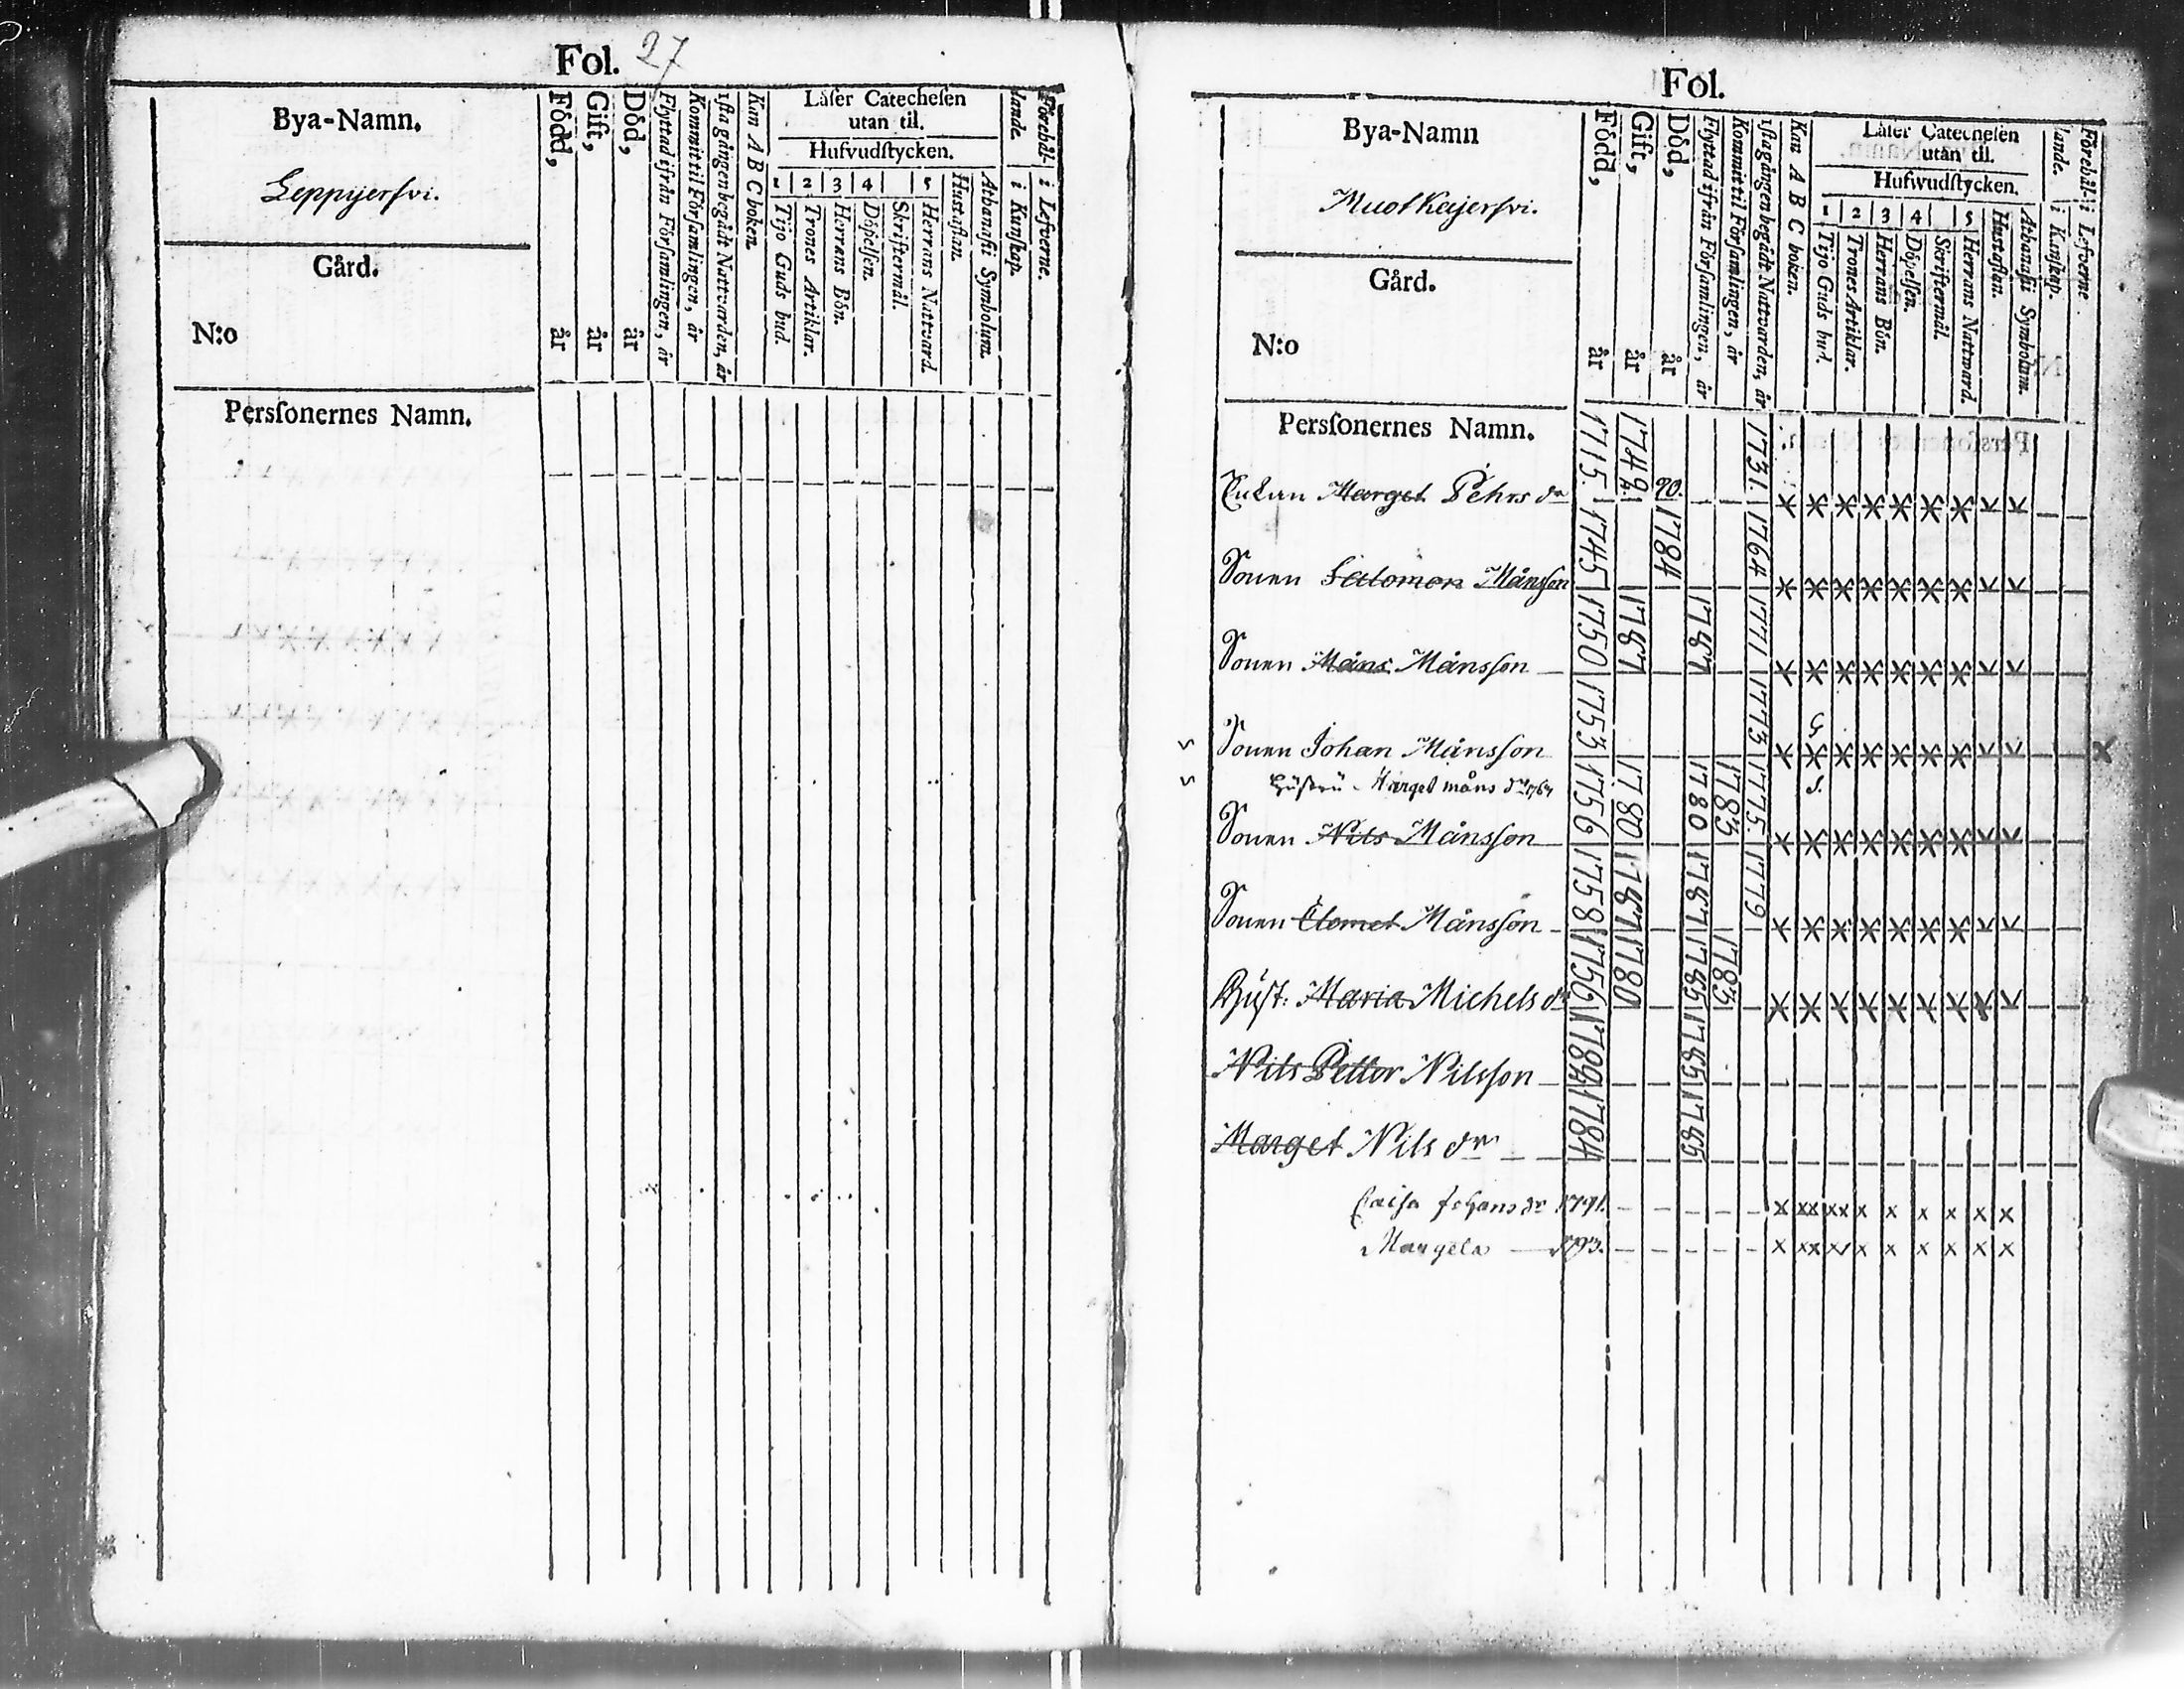 Fol. 27
Bya-Namn.
Leppyerfvi.
Gård.
N:o
Persſonernes Namn.
Född, år
Gift, år
Död, år
Flyttad ifrån Förſamlingen, år
Kommit til Förſamlingen, år
1ſta gången begådt Nattvarden, år
Kan A B C boken.
Låſer Catecheſen
utan til.
Hufvudſtycken.
1 2 3 4 5
Tijo Guds bud.
Trones Artiklar.
Herrans Bön.
Döpelſen.
Skriftermål.
Herrans Nattvard.
Huſtaflan.
Athanaſii Symbolum.
Förehållande.
i Kunſkap.
i Lefverne.
Fol.
Bya-Namn
Muotkajerfvi.
Gård.
N:o
Persſonernes Namn.
Född, år
Gift, år
Död, år
Flyttad ifrån Förſamlingen, år
Kommit til Förſamlingen, år
1ſta gången begådt Nattvarden, år
Kan A B C boken.
Låſer Catecheſen
utan til.
Hufwudſtycken.
1 2 3 4 5
Tijo Guds bud.
Trones Artiklar.
Herrans Bön.
Döpelſen.
Skriftermål.
Herrans Nattward.
Huſtaflan.
Athanaſii Symbolum.
Förehållande.
i Kunſkap.
i Lefverne
Enkan Marget Pehrs dr 1715. 1749 90. 1731.
Sonen Salomon Månsſon 1745 1784 1764
Sonen Måns Månsſon 1750 1787 1787 1771
Sonen Johan Månsſon 1753 1773
Hustru Marget måns dr 1764
Sonen Nils Månsſon 1756 1780 1780 1783 1775.
Sonen Clemet Månsſon 1758 1787 1787 1779
Hust: Maria Michels dr 1756 1780 1785 1783
Nils Petter Nilsſon 1782 1785
Marget Nils dr 1784 1785
Caisa Johans dr 1791. x xx xx x x x x x x
Margeta 1793. x xx x x x x x x x